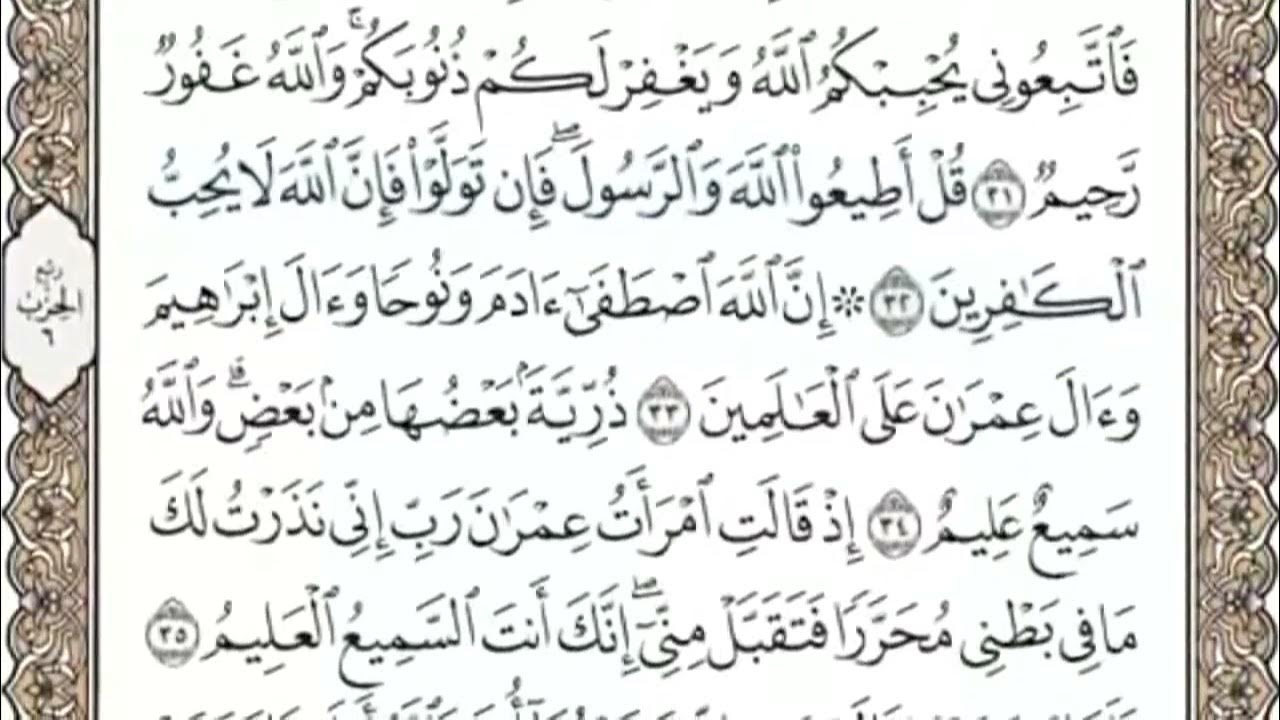 فَٱتَّبِعُونِى يُحْبِبْكُمُ ٱللَّهُ وَيَغْفِرْ لَكُمْ ذُنُوبَكُمْ ۗ وَٱللَّهُ غَفُورٌ
رَّحِيمٌ ٣١ قُلْ أَطِيعُوا۟ ٱللَّهَ وَٱلرَّسُولَ ۖ فَإِن تَوَلَّوْا۟ فَإِنَّ ٱللَّهَ لَا يُحِبُّ
ٱلْكَـٰفِرِينَ ٣٢ ۞ إِنَّ ٱللَّهَ ٱصْطَفَىٰٓ ءَادَمَ وَنُوحًا وَءَالَ إِبْرَٰهِيمَ
وَءَالَ عِمْرَٰنَ عَلَى ٱلْعَـٰلَمِينَ ٣٣ ذُرِّيَّةًۢ بَعْضُهَا مِنۢ بَعْضٍ ۗ وَٱللَّهُ
سَمِيعٌ عَلِيمٌ ٣٤ إِذْ قَالَتِ ٱمْرَأَتُ عِمْرَٰنَ رَبِّ إِنِّى نَذَرْتُ لَكَ
مَا فِى بَطْنِى مُحَرَّرًا فَتَقَبَّلْ مِنِّىٓ ۖ إِنَّكَ أَنتَ ٱلسَّمِيعُ ٱلْعَلِيمُ ٣٥
ربع
الحزب
٦